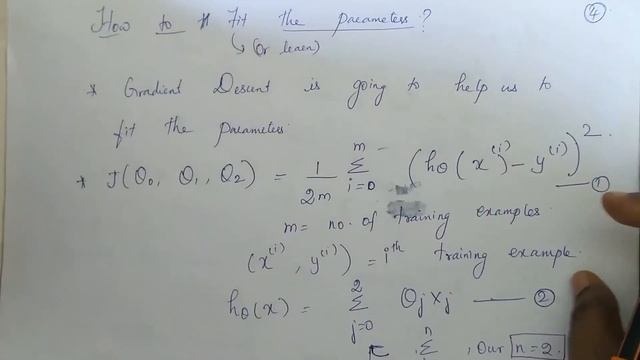 How to fit the parameters? ④
(or learn)
* Gradient Descent is going to help us to
fit the parameters.
* J(θ₀, θ₁, θ₂) = 1/2m Σ_{i=0}^{m} (hθ(x⁽ⁱ⁾) - y⁽ⁱ⁾)². — ①
m = no. of training examples.
(x⁽ⁱ⁾, y⁽ⁱ⁾) = iᵗʰ training example.
hθ(x) = Σ_{j=0}^{2} θj xj — ②
Σ n , Our n=2.